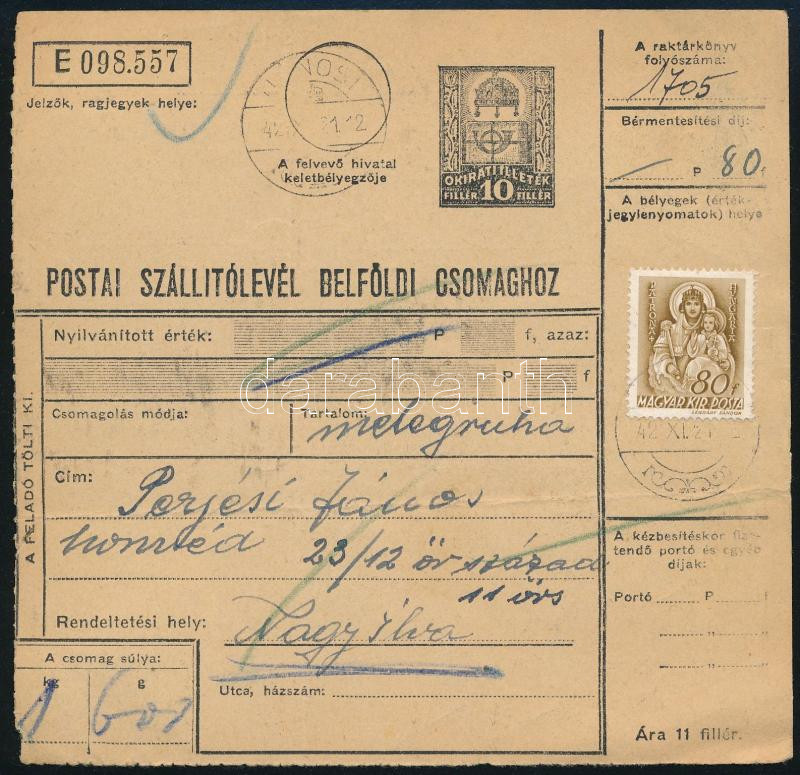 E 098.557
Jelzők, ragjegyek helye:
A felvevő hivatal
keletbélyegzője
OKIRATI ILLETÉK
FILLÉR 10 FILLÉR
A raktárkönyv
folyószáma:
1705
Bérmentesítési díj:
P 80 f
A bélyegek (érték-
jegylenyomatok) helye
POSTAI SZÁLLITÓLEVÉL BELFÖLDI CSOMAGHOZ
PATRONA HUNGARIA
80 f
MAGYAR KIR. POSTA
42 XI. 21
A FELADÓ TÖLTI KI.
Nyilvánított érték: P f, azaz:
P f
darabanth
Csomagolás módja: Tartalom:
melegruha
Cím: Perjési János
honvéd 23/12 őr század
11 őrs
Rendeltetési hely: Nagy Ilva
Utca, házszám:
A csomag súlya:
kg g
1 600
A kézbesítéskor fize-
tendő portó és egyéb
díjak:
Portó P f
" "
" "
" "
Ára 11 fillér.